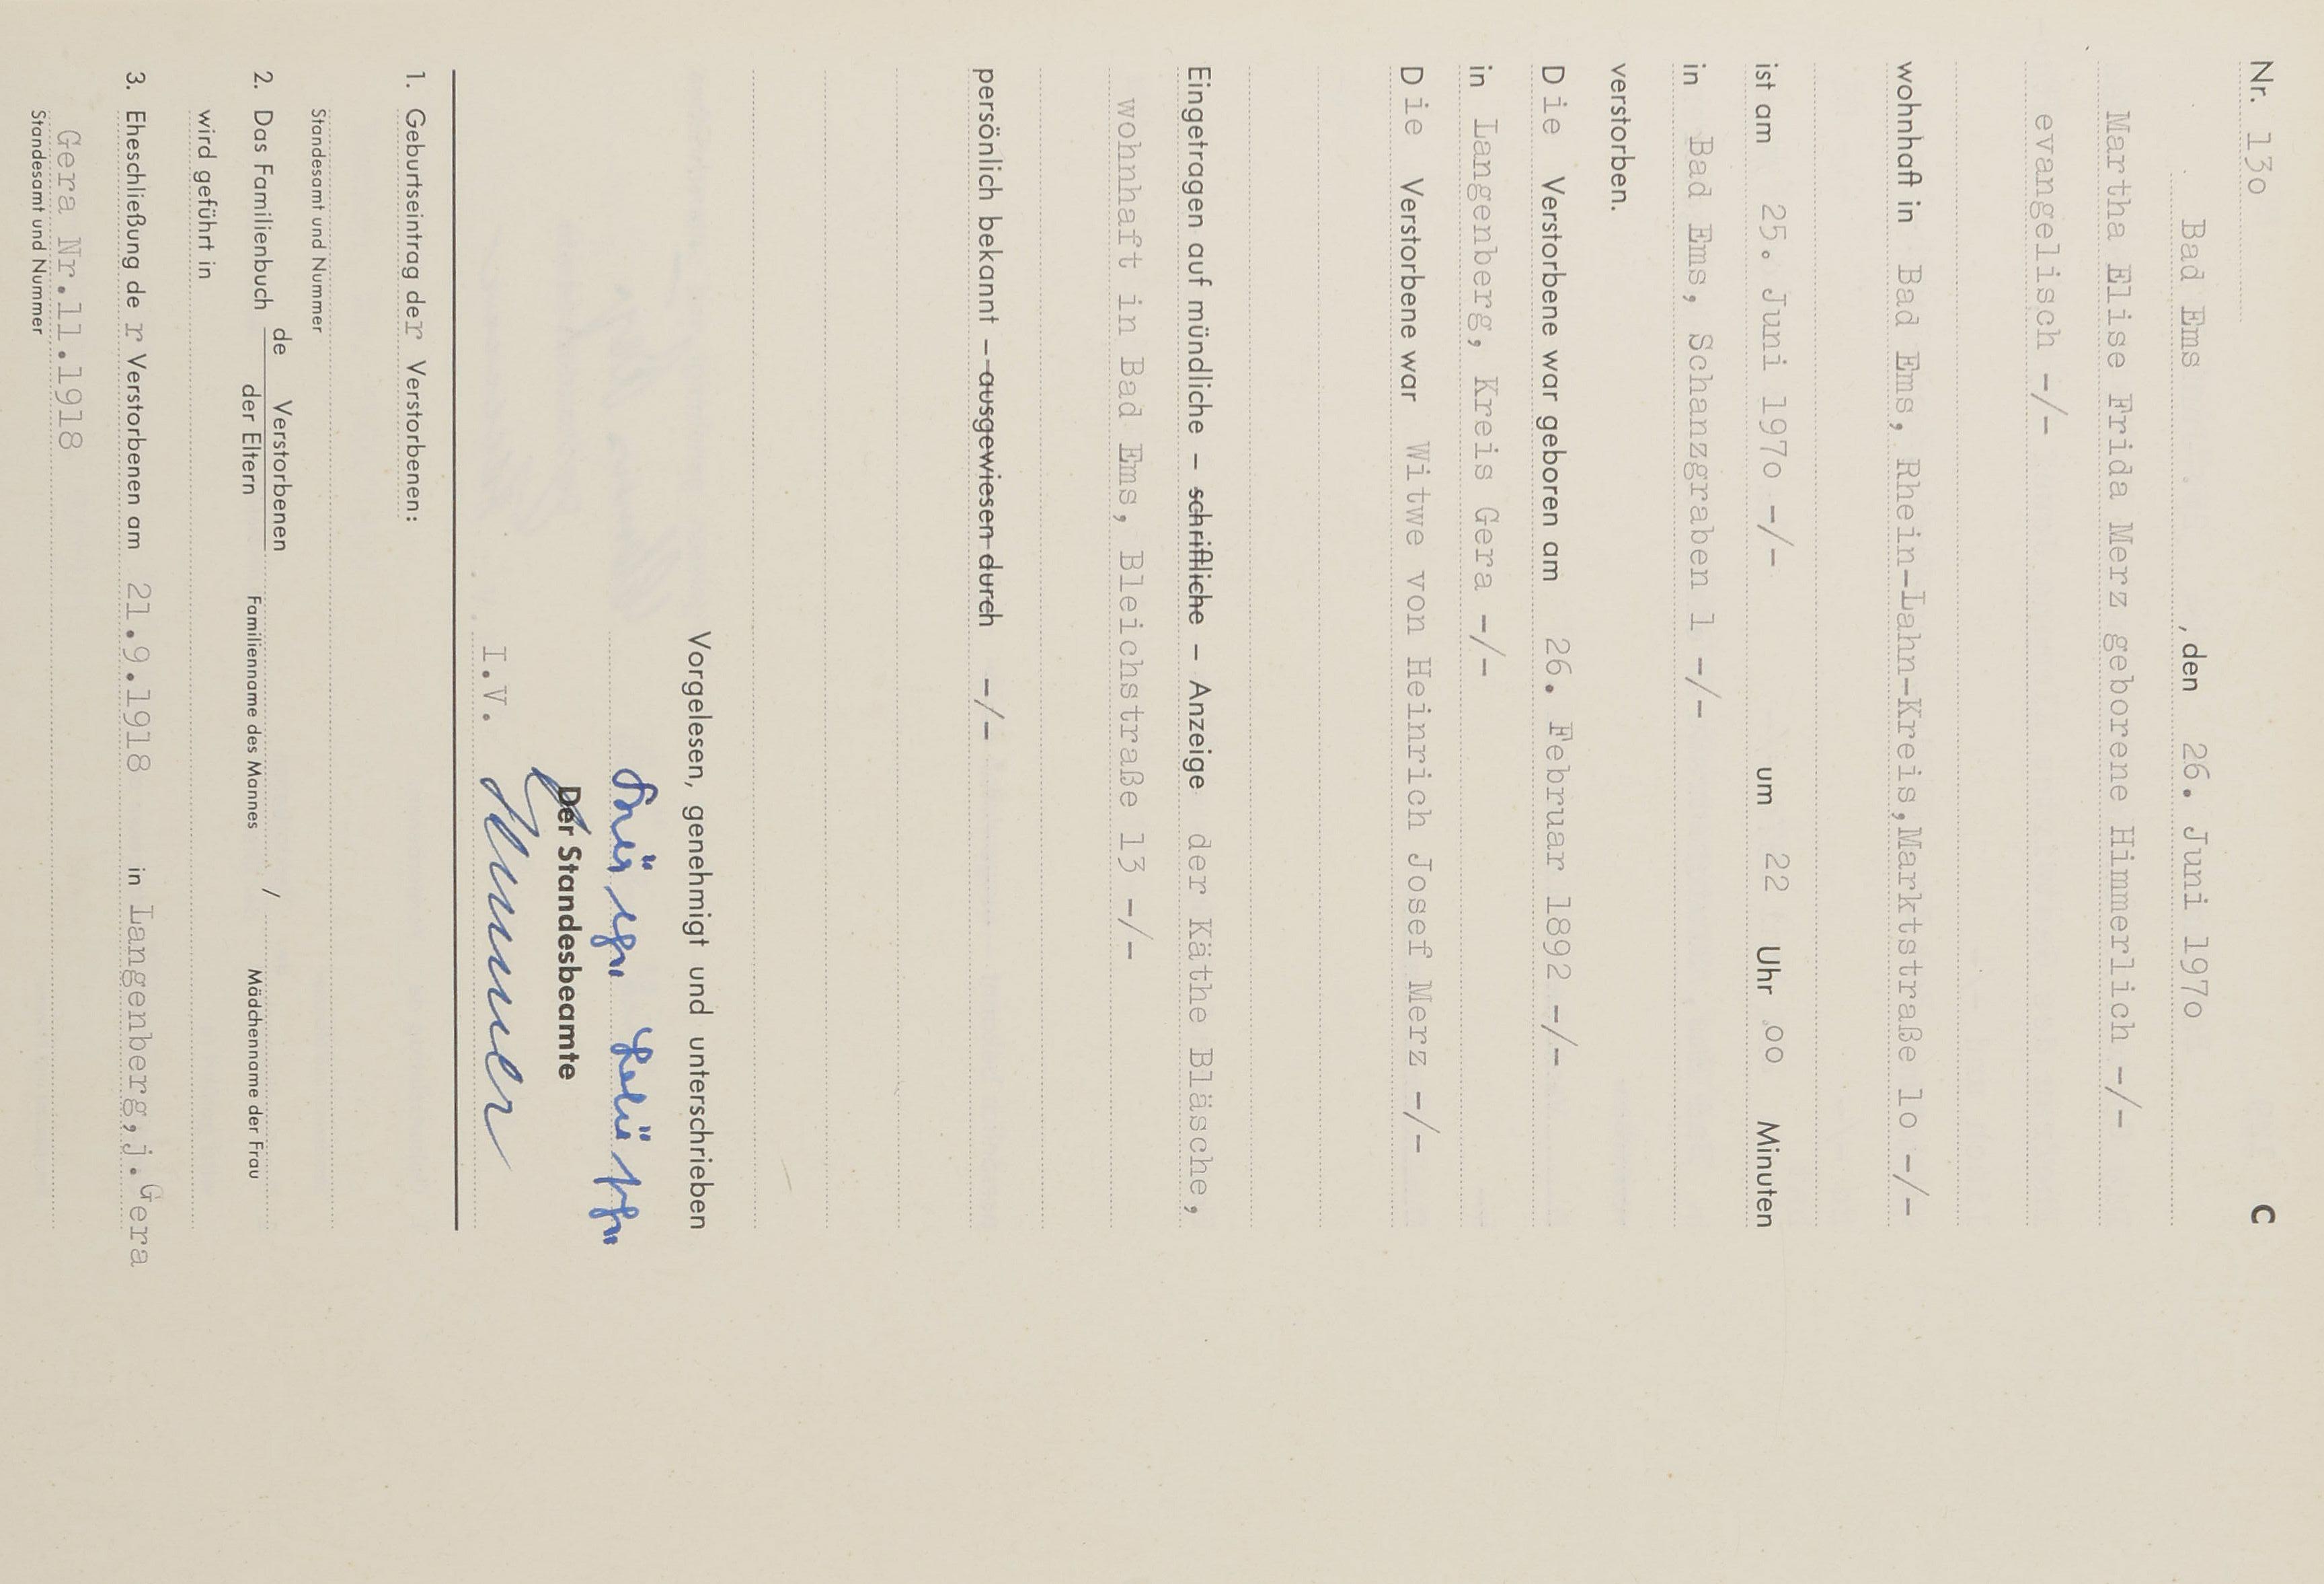 Nr. 13o C
Bad Ems , den 26. Juni 197o
Martha Elise Frida Merz geborene Himmerlich -/-
evangelisch -/-
wohnhaft in Bad Ems, Rhein-Lahn-Kreis,Marktstraße 1o -/-
ist am 25. Juni 197o -/- um 22 Uhr oo Minuten
in Bad Ems, Schanzgraben 1 -/-
verstorben.
Die Verstorbene war geboren am 26. Februar 1892 -/-
in Langenberg, Kreis Gera -/-
Die Verstorbene war Witwe von Heinrich Josef Merz -/-
Eingetragen auf mündliche – schriftliche – Anzeige der Käthe Bläsche,
wohnhaft in Bad Ems, Bleichstraße 13 -/-
persönlich bekannt – ausgewiesen durch -/-
Vorgelesen, genehmigt und unterschrieben
Der Standesbeamte
I.V.
1. Geburtseintrag der Verstorbenen:
Standesamt und Nummer
2. Das Familienbuch de Verstorbenen
der Eltern
Familienname des Mannes / Mädchenname der Frau
wird geführt in
3. Eheschließung der Verstorbenen am 21.9.1918 in Langenberg,j.Gera
Gera Nr.11.1918
Standesamt und Nummer